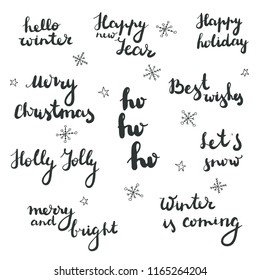 hello
winter
Happy
new
Year
Happy
holiday
Merry
Christmas
ho
ho
ho
Best
wishes
Holly Jolly
Let's
snow
merry
and
bright
Winter
is coming
shutterstock.com · 1165264204